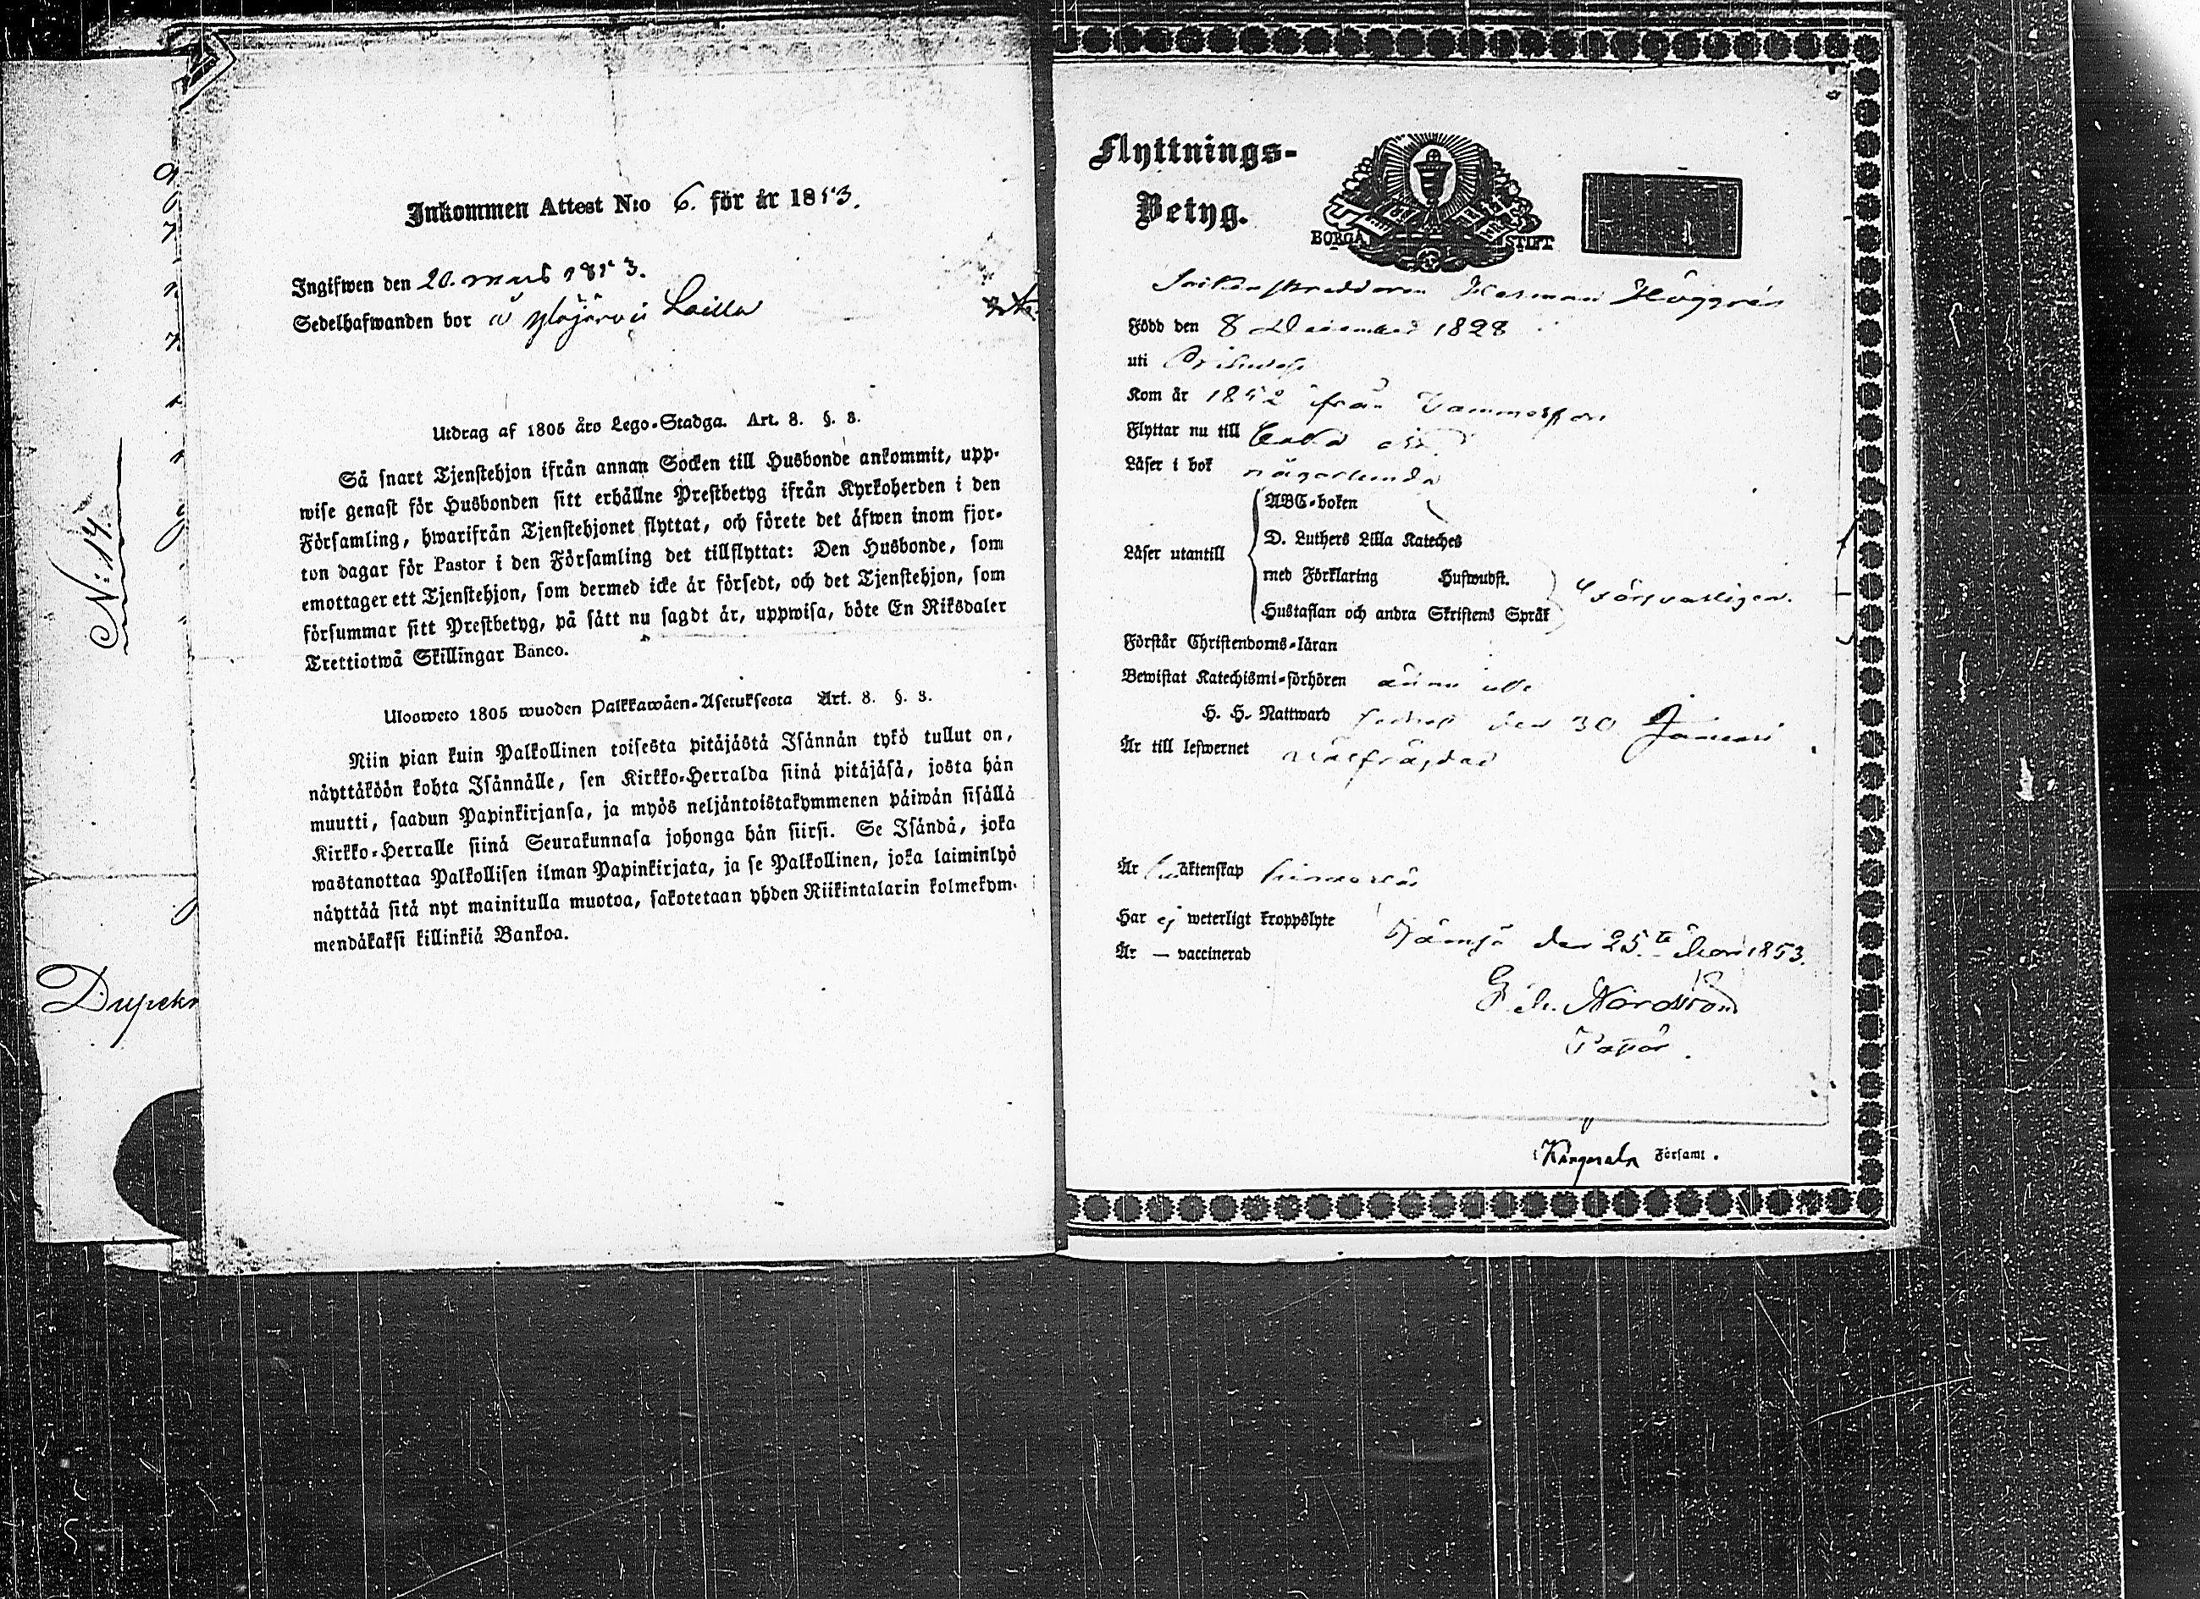 N: 14.
Dupekr
Inkommen Attest N:o 6. för år 1853.
Ingifwen den 20. mars 1853.
Sedelhafwanden bor å Ylöjärvii Lailla
Utdrag af 1805 års Lego-Stadga. Art. 8. §. 8.
Så snart Tjenstehjon ifrån annan Socken till Husbonde ankommit, upp-
wise genast för Husbonden sitt erhållne Prestbetyg ifrån Kyrkoherden i den
Församling, hwarifrån Tjenstehjonet flyttat, och förete det äfwen inom fjor-
ton dagar för Pastor i den Församling det tillflyttat: Den Husbonde, som
emottager ett Tjenstehjon, som dermed icke är försedt, och det Tjenstehjon, som
försummar sitt Prestbetyg, på sätt nu sagdt är, uppwisa, böte En Riksdaler
Trettiotwå Skillingar Banco.
Ulosweto 1805 wuoden Palkkawäen-Asetuksesta Art. 8. §. 8.
Niin pian kuin Palkollinen toisesta pitäjästä Isännän tykö tullut on,
näyttäköön kohta Isännälle, sen Kirkko-Herralda siinä pitäjäsä, josta hän
muutti, saadun Papinkirjansa, ja myös neljäntoistakymmenen päiwän sisällä
Kirkko-Herralle siinä Seurakunnasa johonga hän siirsi. Se Isändä, joka
wastanottaa Palkollisen ilman Papinkirjata, ja se Palkollinen, joka laiminlyö
näyttää sitä nyt mainitulla muotoa, sakotetaan yhden Riikintalarin kolmekym-
mendäkaksi killinkiä Bankoa.
Flyttnings-
Betyg.
BORGÅ STIFT
Sockenskreddaren Herman Höggrén
Född den 8 December 1828
uti
Kom år 1852 ifrån Vammeskoski
Flyttar nu till
Läser i bok någorlunda
Läser utantill
ABC-boken
D. Luthers Lilla Kateches
med Förklaring Huswudst.
Hustaflan och andra Skriftens Språk
försvarligen.
Förstår Christendoms-läran
Bewistat Katechismi-förhören ännu icke
H. H. Nattward sednast den 30 Januari
Är till lefwernet välfräjdad
Är äktenskap hinderslös
Har ej weterligt kroppslyte
Är — vaccinerad
Jämsä den 25.te 1853.
Nordström
Pastor.
Kangasala Församl.